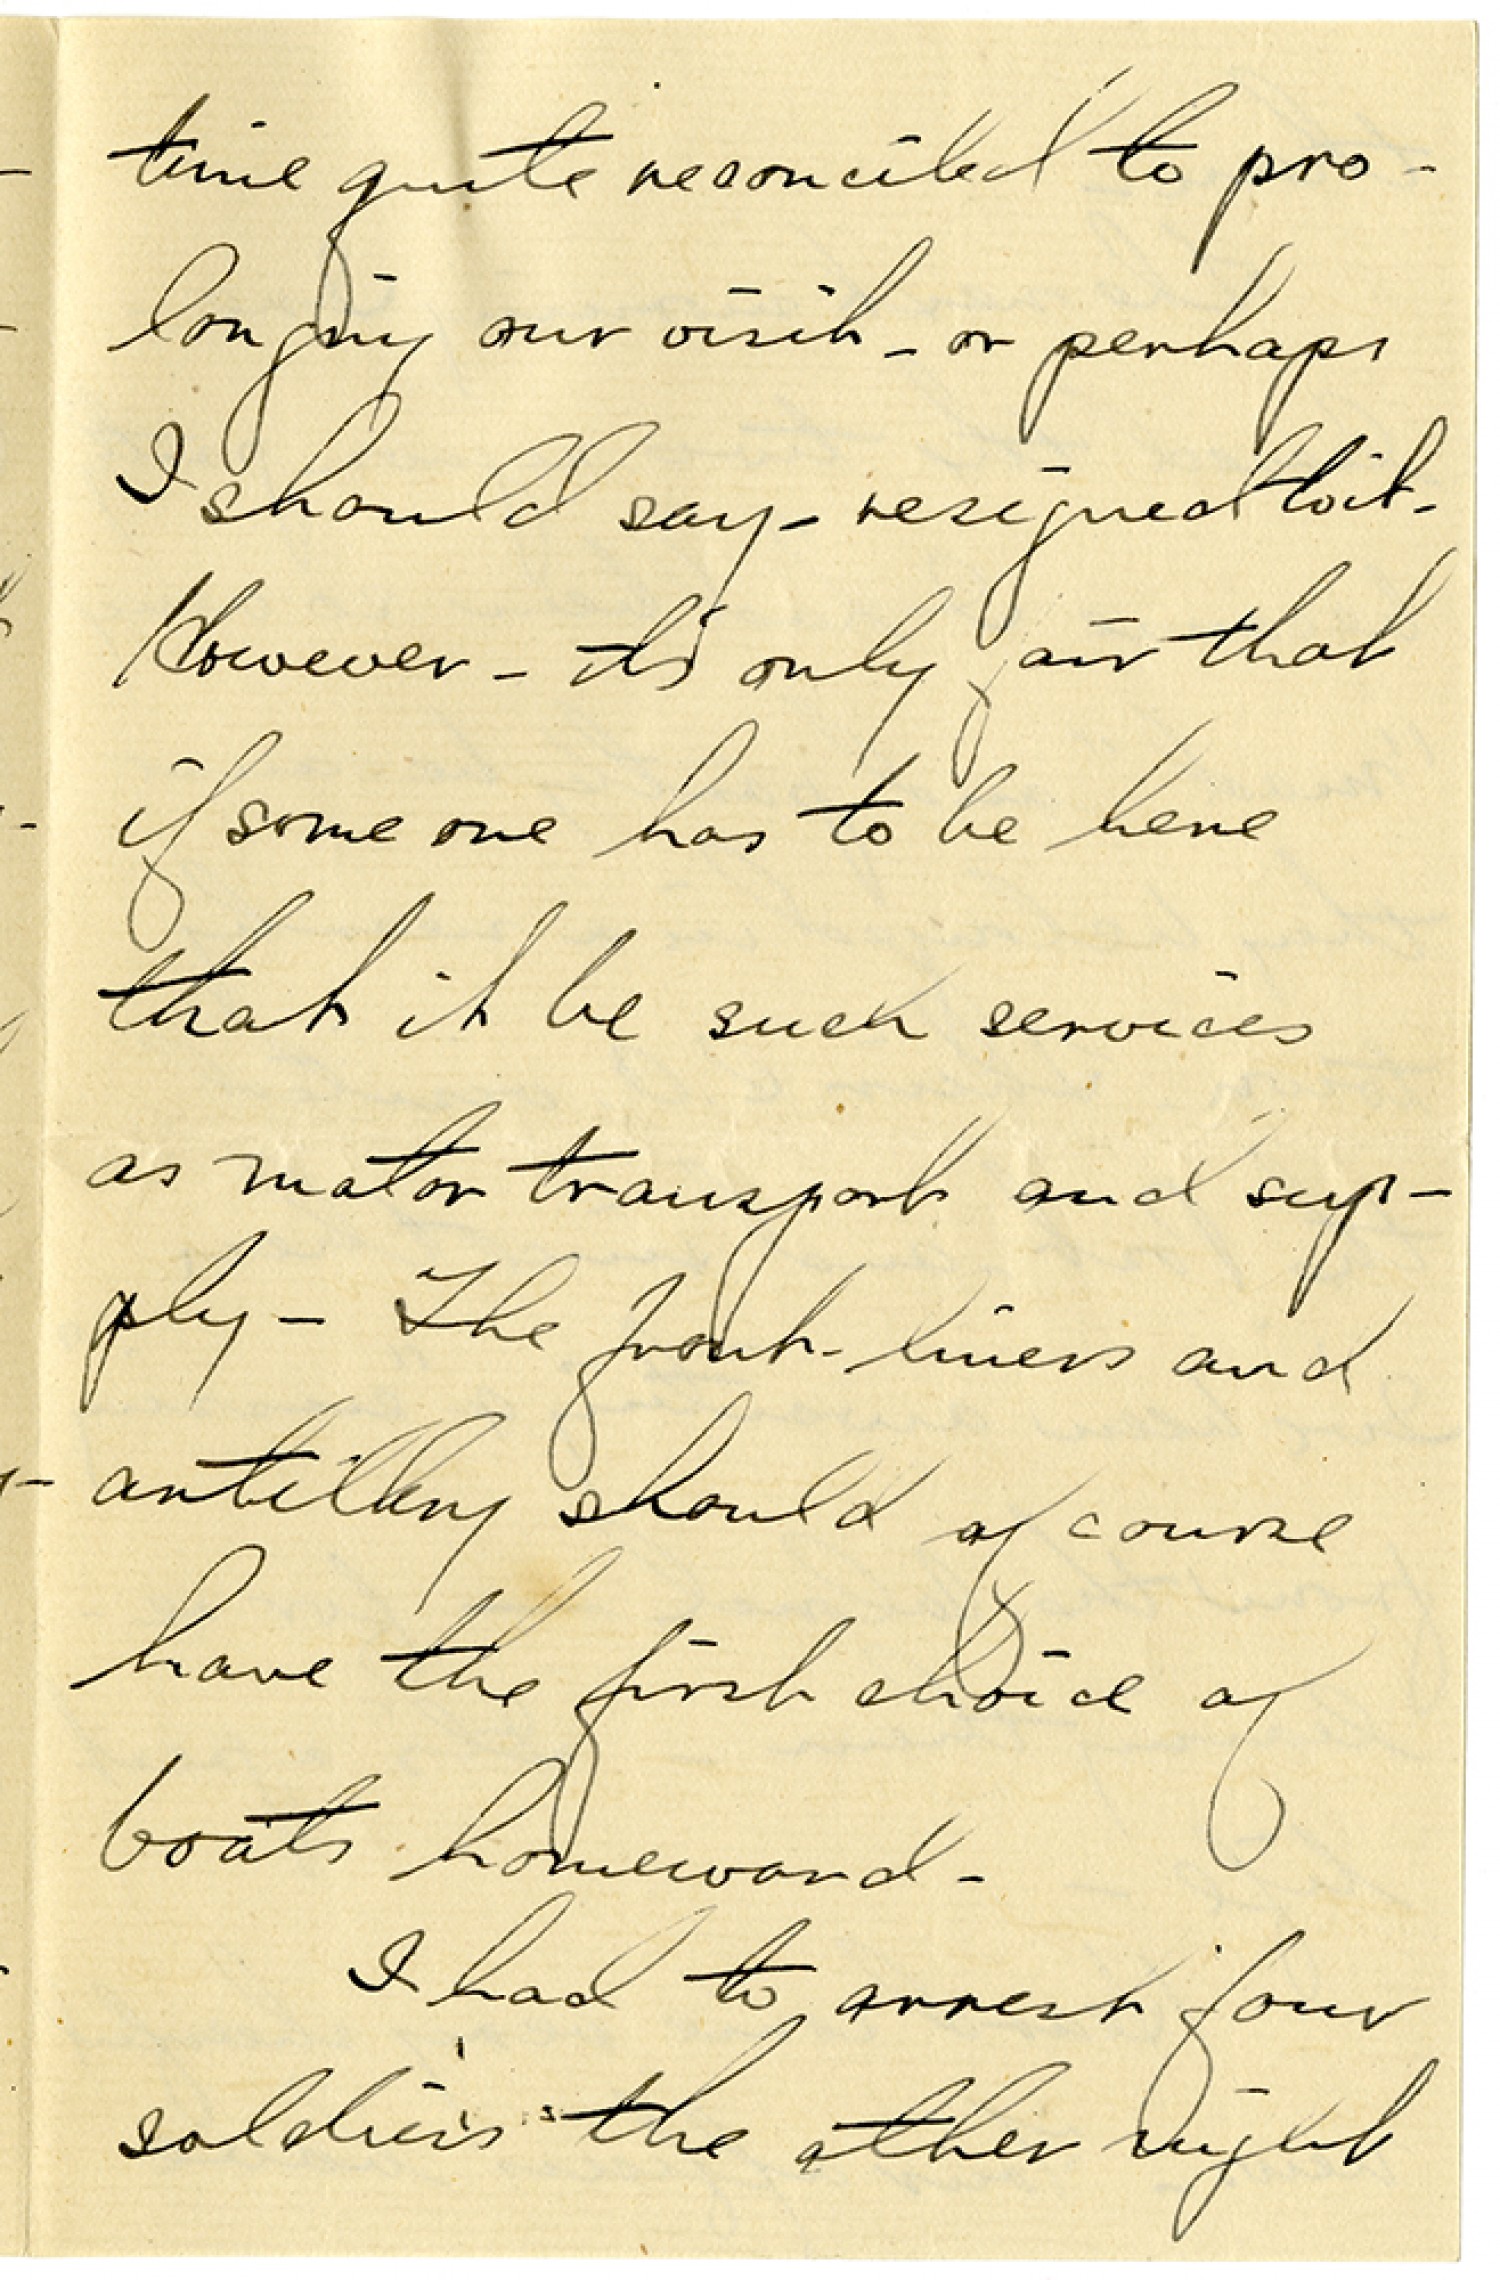 time quite reconciled to pro-
longing our visit - or perhaps
I should say - resigned to it -
However - its only fair that
if some one has to be here
that it be such services
as motor transport and sup-
ply - The front-liners and
artillery should of course
have the first choice of
boats homeward -
I had to arrest four
soldiers the other night